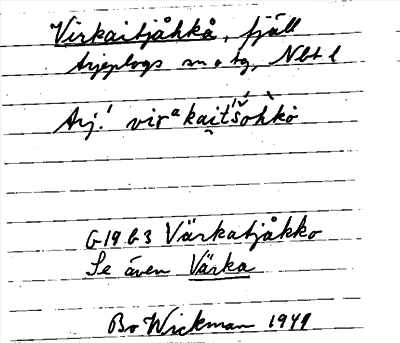 Virkaitjåhkå, fjäll
Arjeplogs sn o tg, Nbt l
Arj.! virᵃkait'šoh̀ko
G 19 63 Värkatjåkko
Se även Värka
Bo Wickman 1941